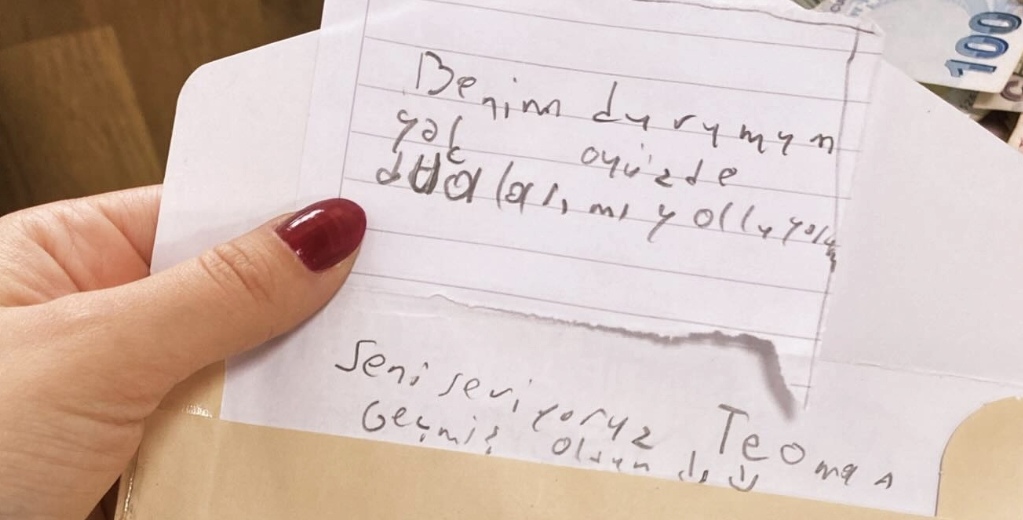 100
Benim durumum
yok oyüzde
dualarımı yolluyorum
Seni seviyoruz Teoman
Geçmiş olsun